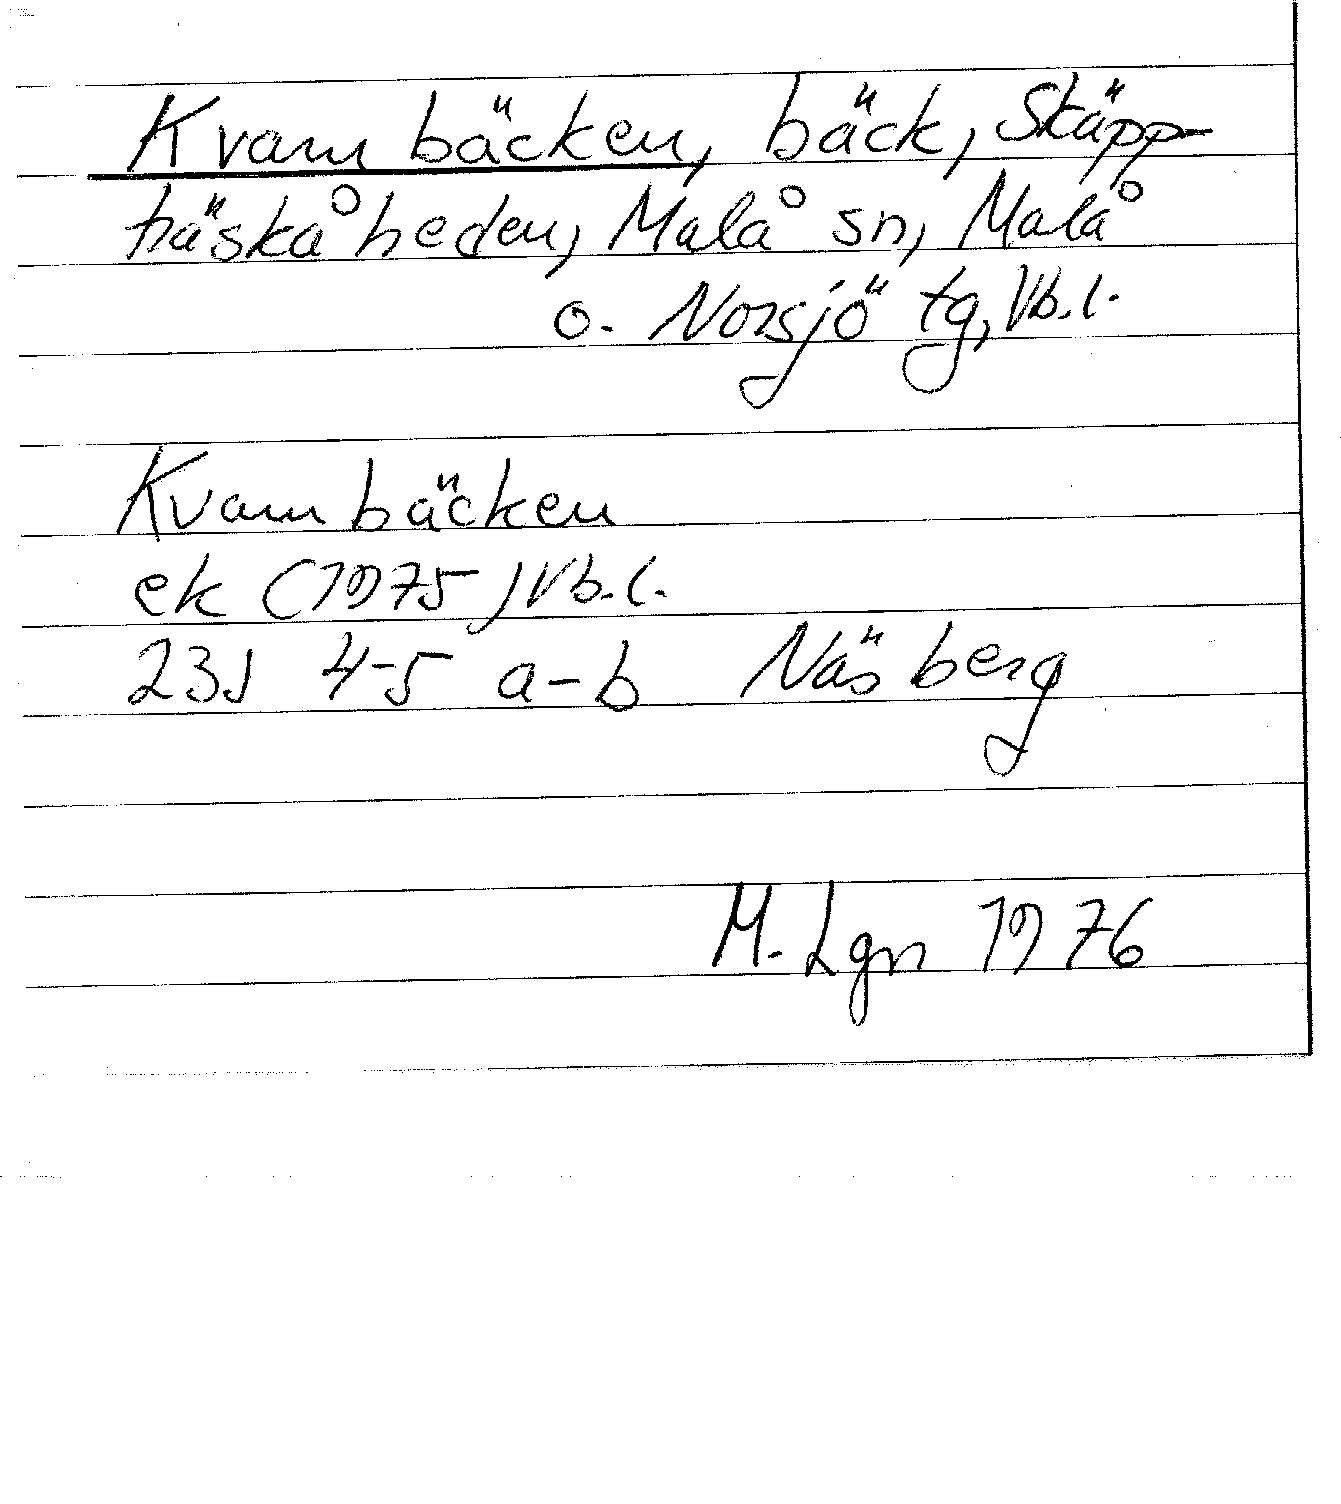 Kvarnbäcken, bäck, Skäpp-
träskåheden, Malå sn, Malå
o. Norsjö tg, Vb.l.
Kvarnbäcken
ek (1975) Vb.l.
23J 4-5 a-b Näsberg
M. Lgn 1976